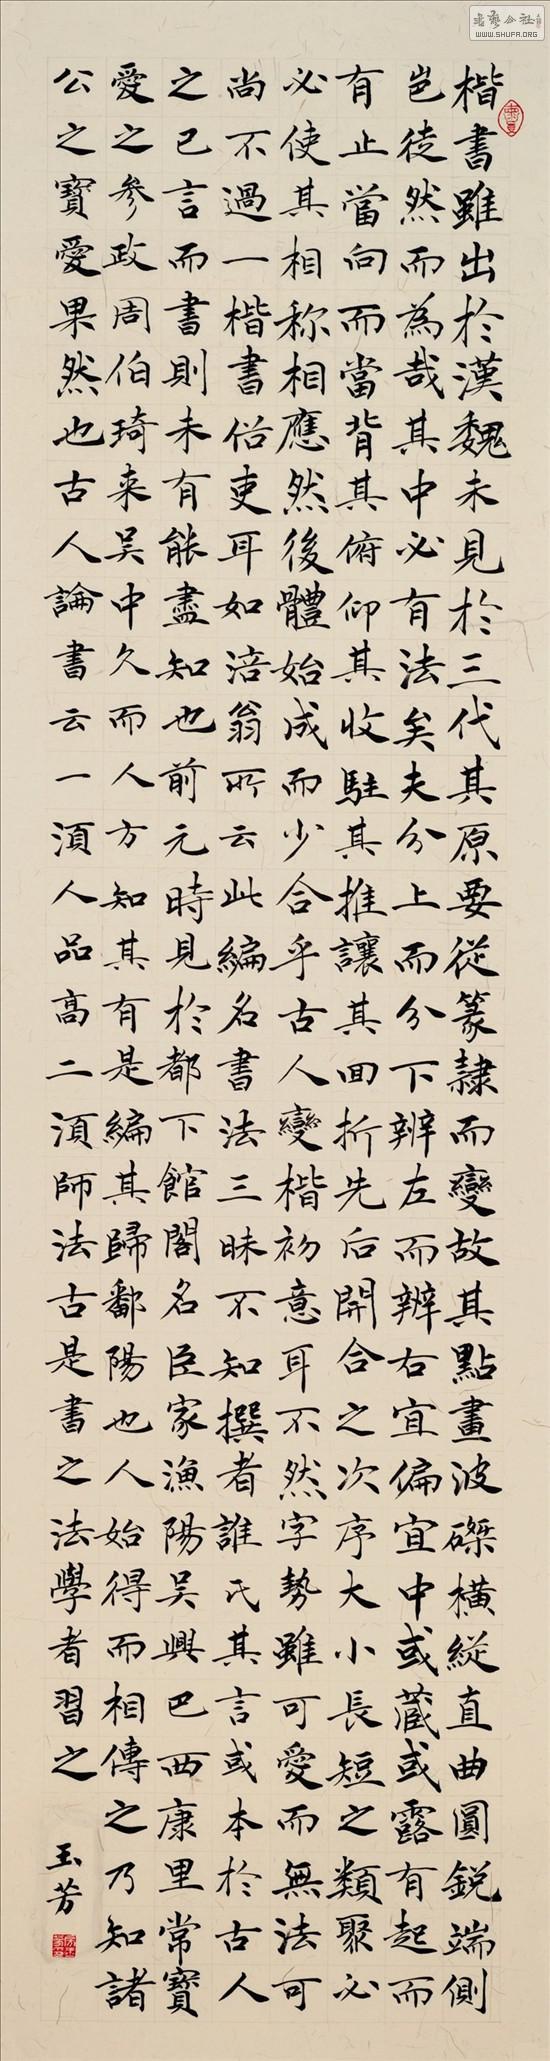 楷書雖出於漢魏未見於三代其原要從篆隸而變故其點畫波磔橫縱直曲圓銳端側
豈徒然而為哉其中必有法矣夫分上而分下辨左而辨右宜偏宜中或藏或露有起而
有止當向而當背其俯仰其收駐其推讓其回折先后開合之次序大小長短之類聚必
必使其相称相應然後體始成而少合乎古人變楷初意耳不然字勢雖可愛而無法可
尚不過一楷書俗吏耳如涪翁所云此編名書法三昧不知撰者誰氏其言或本於古人
之已言而書則未有能盡知也前元時見於都下館閣名臣家漁陽吳興巴西康里常寶
愛之參政周伯琦来吴中久而人方知其有是編其歸鄱陽也人始得而相傳之乃知諸
公之寶愛果然也古人論書云一湏人品高二湏師法古是書之法學者習之
玉芳
书艺公社
WWW.SHUFA.ORG